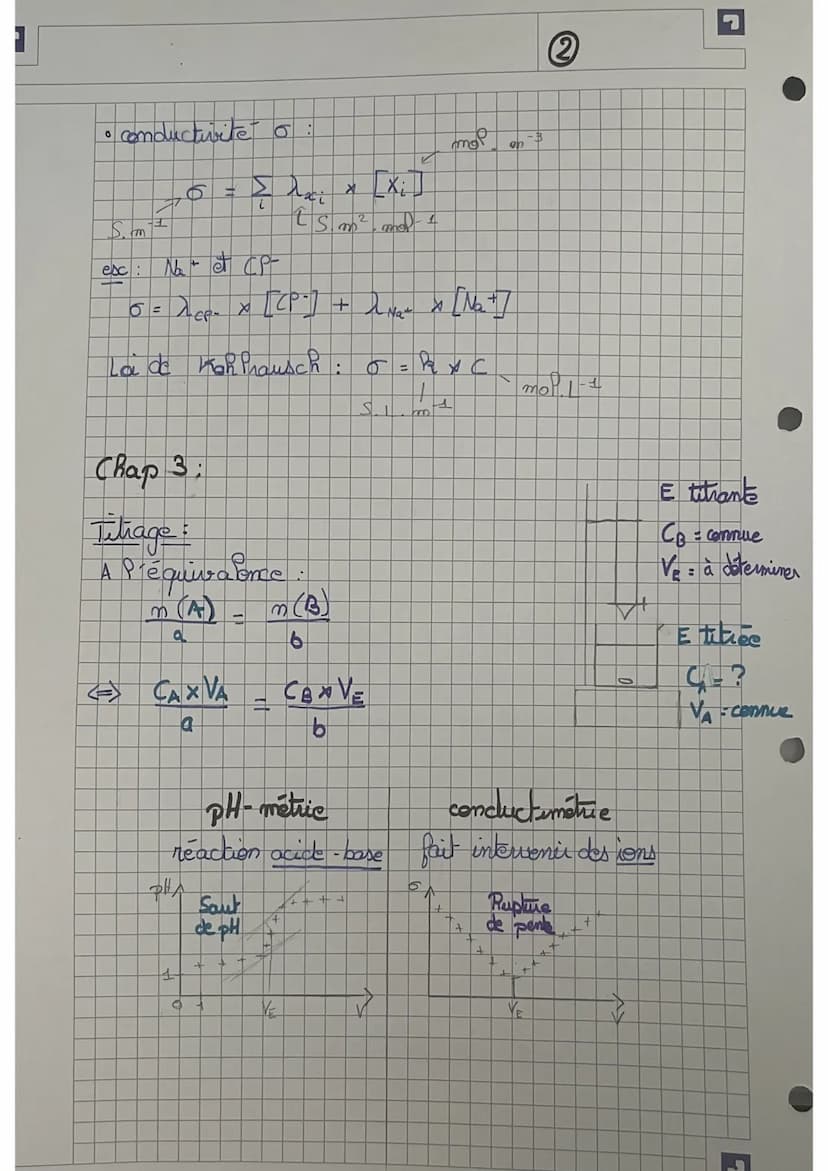 ②
• conductivité σ :
mol. m⁻³
σ = Σᵢ λₓᵢ × [Xᵢ]
S.m⁻¹
S.m².mol⁻¹
ex : Na⁺ et Cl⁻
σ = λCl⁻ × [Cl⁻] + λNa⁺ × [Na⁺]
Loi de Kohlrausch : σ = k × C
mol.L⁻¹
S.L.m⁻¹
Chap 3 :
Titrage :
A l'équivalence :
n(A)/a = n(B)/b
⇔ CA×VA/a = CB×VE/b
E titrante
CB = connue
VE = à déterminer
E titrée
CA = ?
VA = connue
pH-métrie
réaction acide-base
pH
Saut
de pH
1
0 1 VE V
conductimétrie
fait intervenir des ions
σ
Rupture
de pente
VE V